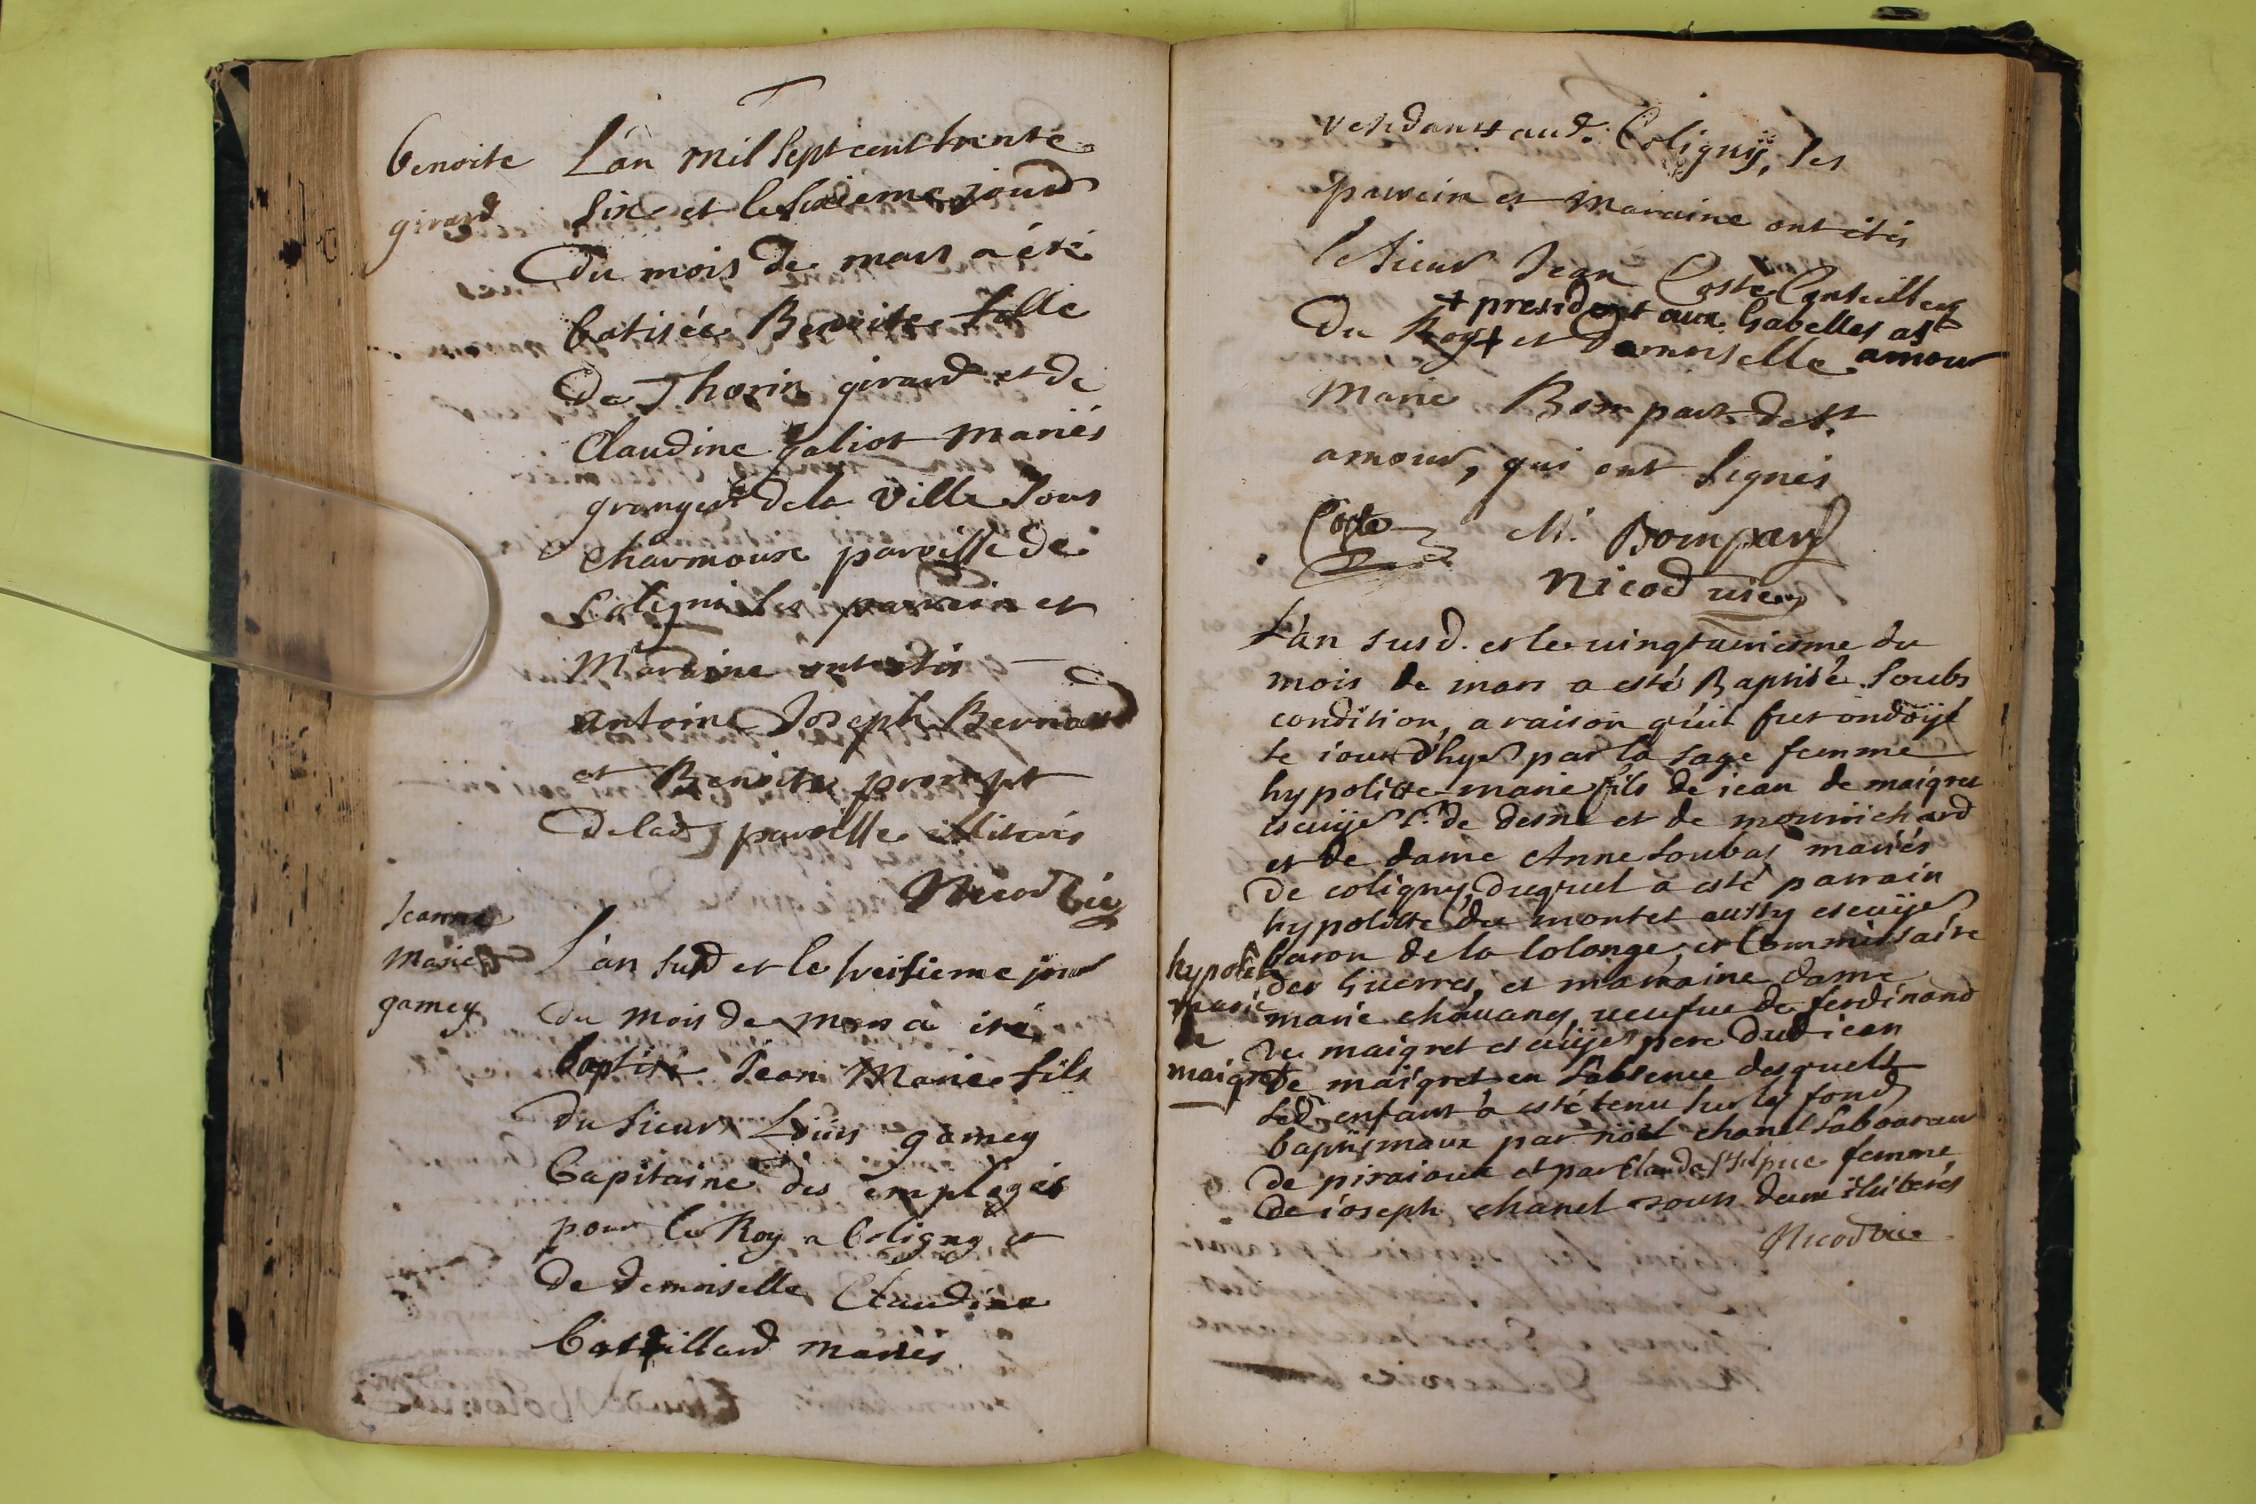 benoite
girard
L'an mil sept cent trente
six et le sixieme jour
du mois de mars a été
batisée Benoite fille
de Thorin girard et de
Claudine galiot mariés
granger de la ville sous
charmoux paroisse de
Coligni les parrein et
Maraine ont étés
antoine Joseph Bernard
et Benoite prompt
de lad paroisse illiterés
Nicod vic
jeanne
Marie
gamey
L'an susd et le treisieme jour
du mois de mars a été
baptisé Jean Marie fils
du sieur Loüis gamey
Capitaine des employés
pour le Roy a Coligny et
de demoiselle Claudine
mariés
residants aud. Coligny, les
parrein et maraine ont étés
le sieur Jean Coste Conseiller
+ president aux Gabelles a st
amour
du Roy + et Demoiselle
Marie Bompart de st
amour, qui ont signés
Coste M. Bompard
Nicod vic
L'an susd. et le vingtunieme du
mois de mars a esté Baptisé soubs
condition, a raison qu'il fut ondoÿé
le iour d'hyer par la sage femme
hypolitte marie fils de iean de maigret
escuijer sr. de desne et de mournichard
et de dame Anne Soubas mariés
de coligny, duquel a esté parrain
hypolitte du montet aussy escuijer
baron de la lolonge, et Commissaire
des Guerres, et marraine dame
marie chouvancy ueufue de ferdinand
de maigret escuijer pere dud iean
de maigret en l'absence desquels
led. enfant a esté tenu sur les fonds
baptismaux par noël chanel laboureur
de piraioux et par Clauda femme
de ioseph chanel tous deux illiterés
Nicod vic
hypolite
marie
de
maigret